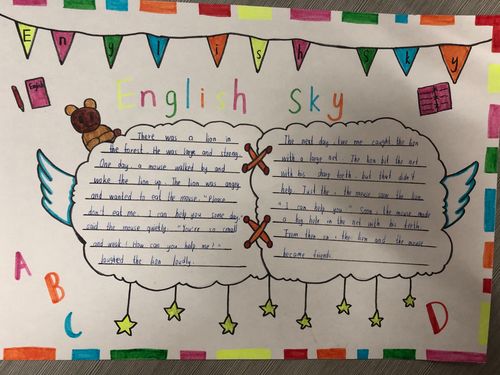 English Sky
English
English Sky
There was a lion in
the forest. He was large and strong.
One day a mouse walked by and
wake the lion up. The lion was angry
and wanted to eat the mouse. "Please
don't eat me. I can help you some day."
said the mouse quietly. "You're so small
and weak! How can you help me?"
laughed the lion loudly.
The next day, two men caught the lion
with a large net. The lion bit the net
with his sharp teeth, but that didn't
help. Just then, the mouse saw the lion
"I can help you." Soon, the mouse made
a big hole in the net with his teeth.
From then on, the lion and the mouse
became friends.
A
B
C
D